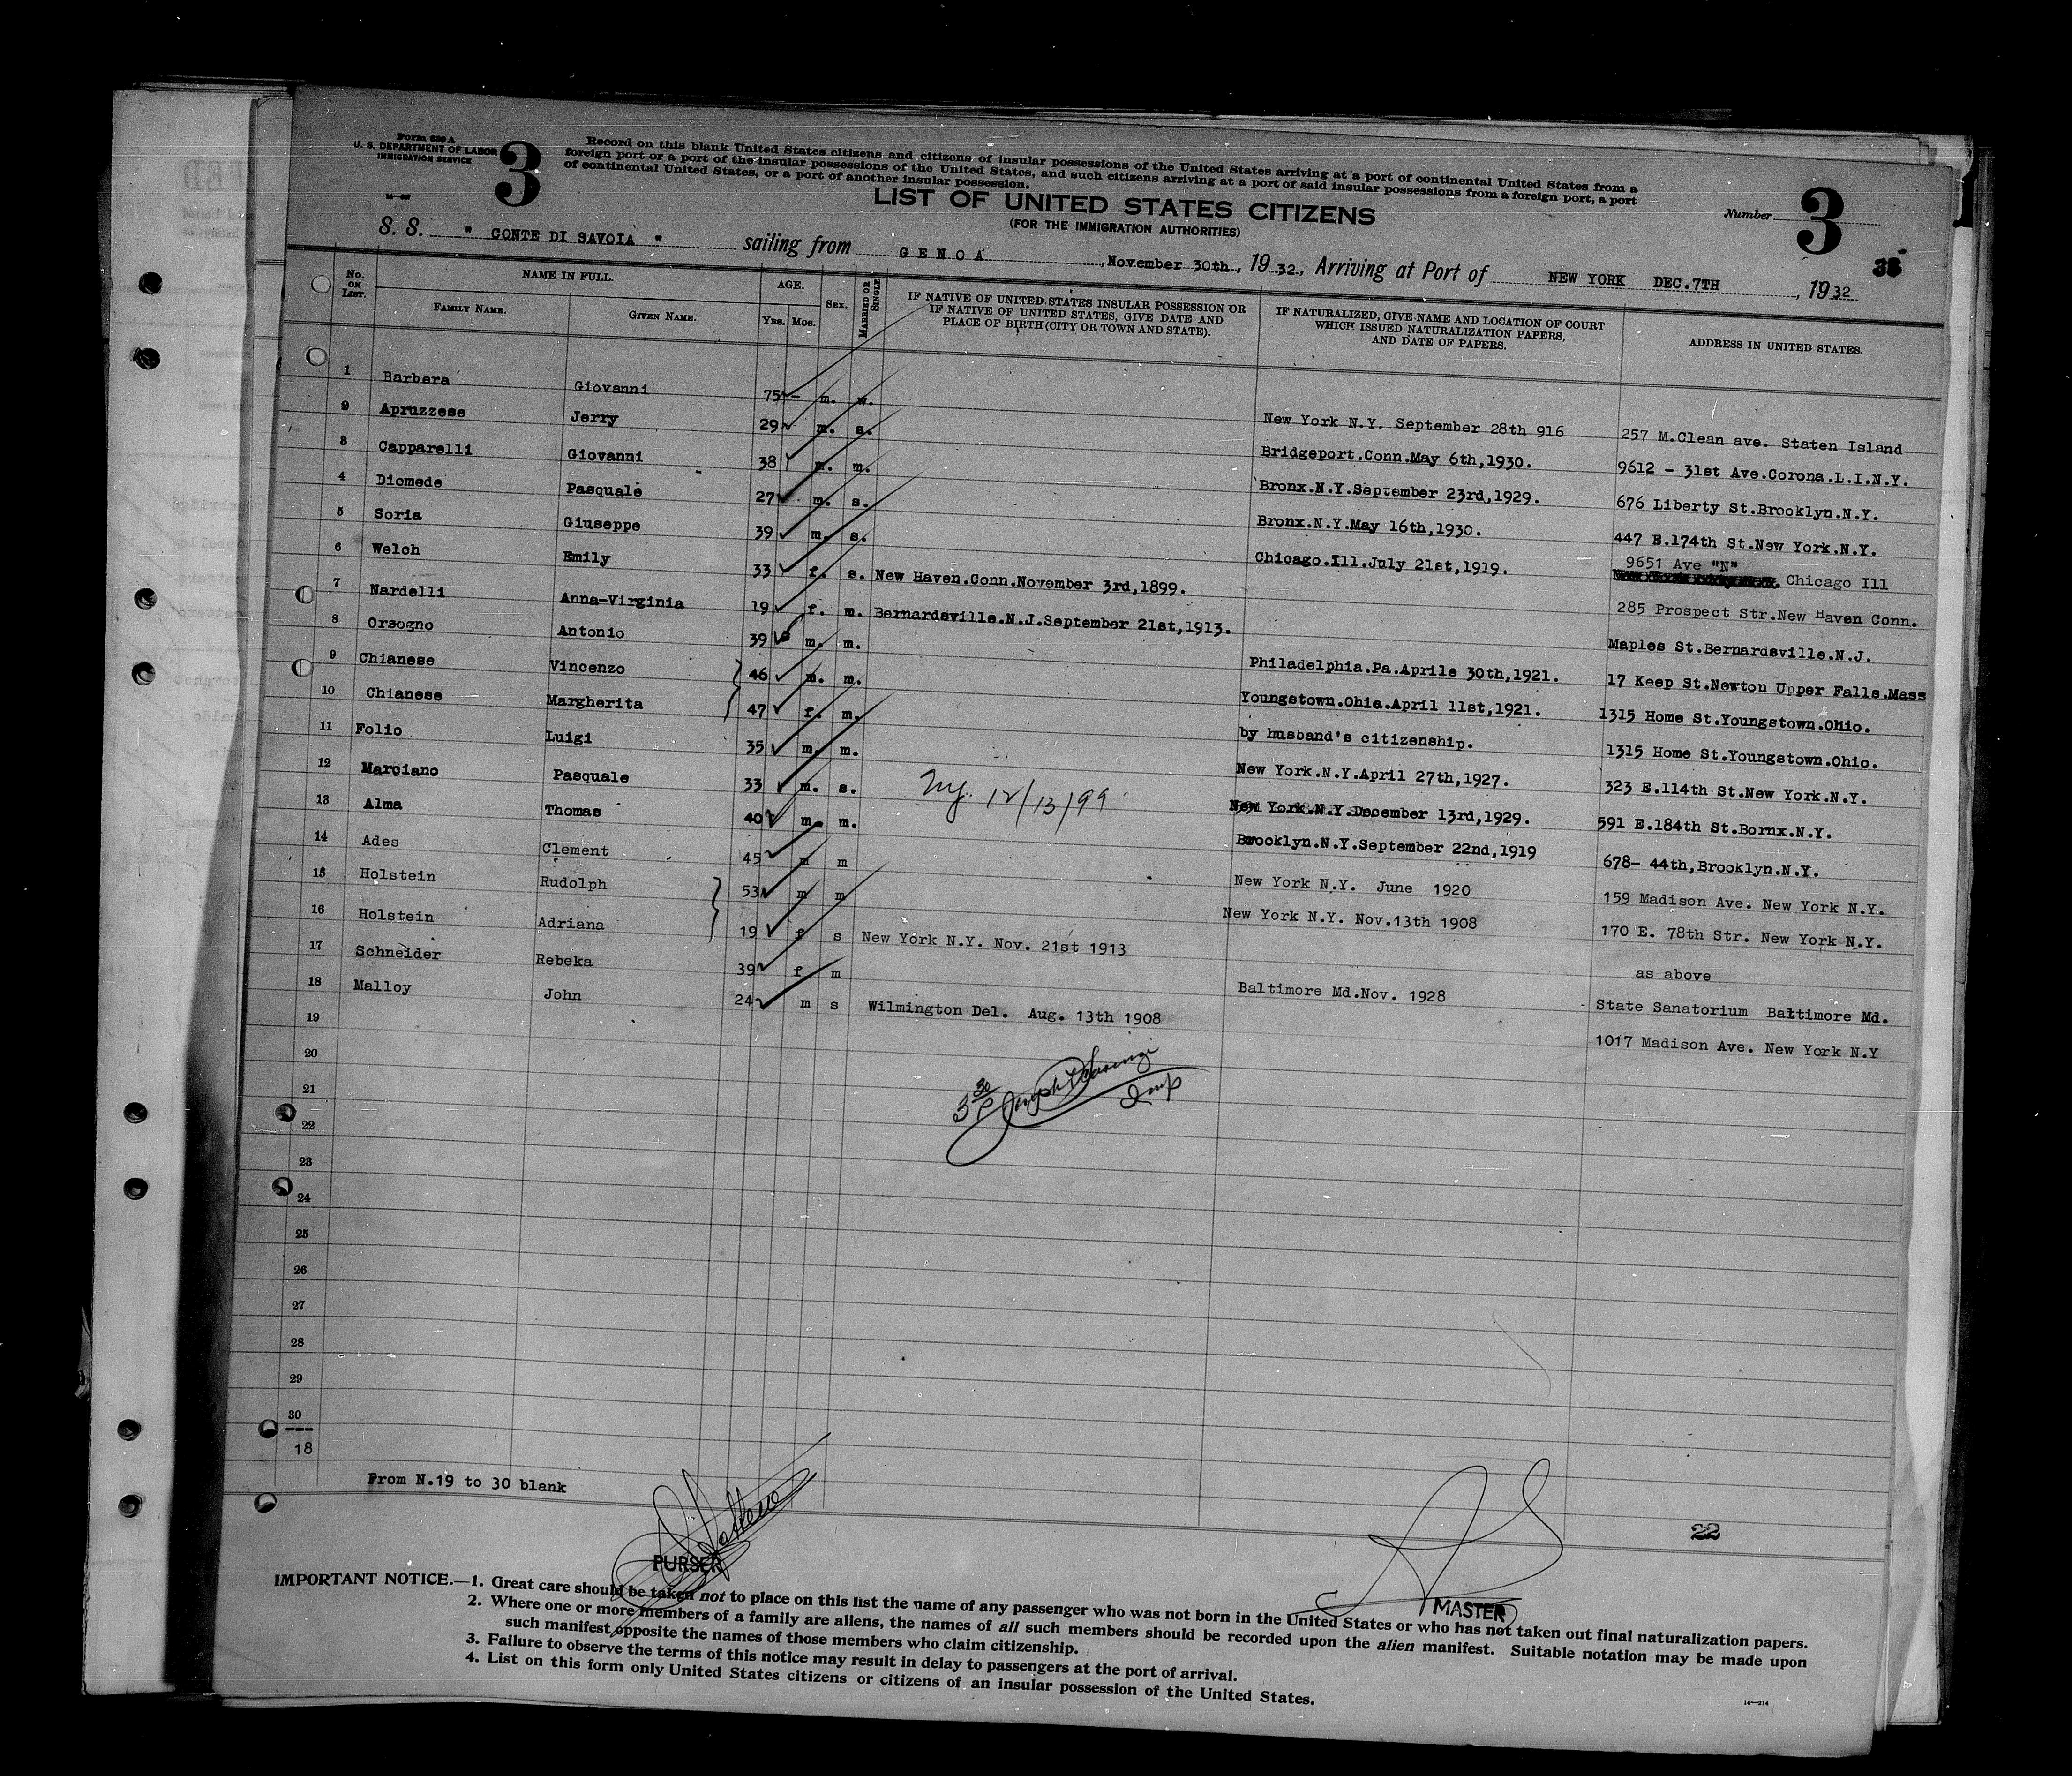 Form 630 A
U. S. DEPARTMENT OF LABOR
IMMIGRATION SERVICE
3
Record on this blank United States citizens and citizens of insular possessions of the United States arriving at a port of continental United States from a
foreign port or a port of the insular possessions of the United States, and such citizens arriving at a port of said insular possessions from a foreign port, a port
of continental United States, or a port of another insular possession.
LIST OF UNITED STATES CITIZENS
(FOR THE IMMIGRATION AUTHORITIES)
Number 3
38
S. S. " CONTE DI SAVOIA " sailing from GENOA, November 30th, 1932, Arriving at Port of NEW YORK DEC.7TH, 1932
No. ON LIST. NAME IN FULL. AGE. SEX. MARRIED OR SINGLE
FAMILY NAME. GIVEN NAME. YRS. MOS.
IF NATIVE OF UNITED STATES INSULAR POSSESSION OR
IF NATIVE OF UNITED STATES, GIVE DATE AND
PLACE OF BIRTH (CITY OR TOWN AND STATE).
IF NATURALIZED, GIVE NAME AND LOCATION OF COURT
WHICH ISSUED NATURALIZATION PAPERS,
AND DATE OF PAPERS.
ADDRESS IN UNITED STATES.
1 Barbera Giovanni 75 - m. w. New York N.Y. September 28th 916 257 M.Clean ave. Staten Island
2 Apruzzese Jerry 29 m. s. Bridgeport.Conn.May 6th,1930. 9612 - 31st Ave.Corona.L.I.N.Y.
3 Capparelli Giovanni 38 m. m. Bronx.N.Y.September 23rd,1929. 676 Liberty St.Brooklyn.N.Y.
4 Diomede Pasquale 27 m. s. Bronx.N.Y.May 16th,1930. 447 E.174th St.New York.N.Y.
5 Soria Giuseppe 39 m. s. Chicago.Ill.July 21st,1919. 9651 Ave "N" Chicago Ill
6 Welch Emily 33 f. s. New Haven.Conn.November 3rd,1899. 285 Prospect Str.New Haven Conn.
7 Nardelli Anna-Virginia 19 f. m. Bernardsville.N.J.September 21st,1913. Maples St.Bernardsville.N.J.
8 Orsogno Antonio 39 m. m. Philadelphia.Pa.Aprile 30th,1921. 17 Keep St.Newton Upper Falls.Mass
9 Chianese Vincenzo 46 m. m. Youngstown.Ohio.April 11st,1921. 1315 Home St.Youngstown.Ohio.
10 Chianese Margherita 47 f. m. by husband's citizenship. 1315 Home St.Youngstown.Ohio.
11 Folio Luigi 35 m. m. New York.N.Y.April 27th,1927. 323 E.114th St.New York.N.Y.
12 Marciano Pasquale 33 m. s. Ny. 12/13/99 New York.N.Y.December 13rd,1929. 591 E.184th St.Bornx.N.Y.
13 Alma Thomas 40 m. m. Brooklyn.N.Y.September 22nd,1919 678- 44th,Brooklyn.N.Y.
14 Ades Clement 45 m m New York N.Y. June 1920 159 Madison Ave. New York N.Y.
15 Holstein Rudolph 53 m m New York N.Y. Nov.13th 1908 170 E. 78th Str. New York N.Y.
16 Holstein Adriana 19 f s New York N.Y. Nov. 21st 1913 as above
17 Schneider Rebeka 39 f m Baltimore Md.Nov. 1928 State Sanatorium Baltimore Md.
18 Malloy John 24 m s Wilmington Del. Aug. 13th 1908 1017 Madison Ave. New York N.Y
19
20
3 30 P Joseph Insp
21
22
23
24
25
26
27
28
29
30
18
From N.19 to 30 blank
22
PURSER
MASTER
IMPORTANT NOTICE.—1. Great care should be taken not to place on this list the name of any passenger who was not born in the United States or who has not taken out final naturalization papers.
2. Where one or more members of a family are aliens, the names of all such members should be recorded upon the alien manifest. Suitable notation may be made upon
such manifest opposite the names of those members who claim citizenship.
3. Failure to observe the terms of this notice may result in delay to passengers at the port of arrival.
4. List on this form only United States citizens or citizens of an insular possession of the United States.
14—214